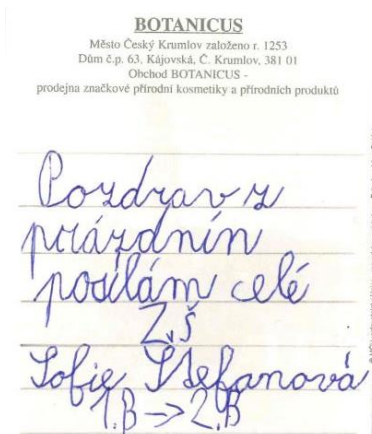 BOTANICUS
Město Český Krumlov založeno r. 1253
Dům č.p. 63, Kájovská, Č. Krumlov, 381 01
Obchod BOTANICUS -
prodejna značkové přírodní kosmetiky a přírodních produktů
Pozdrav z
prázdnin
posílám celé
ZŠ
Sofie Štefanová
1.B → 2.B